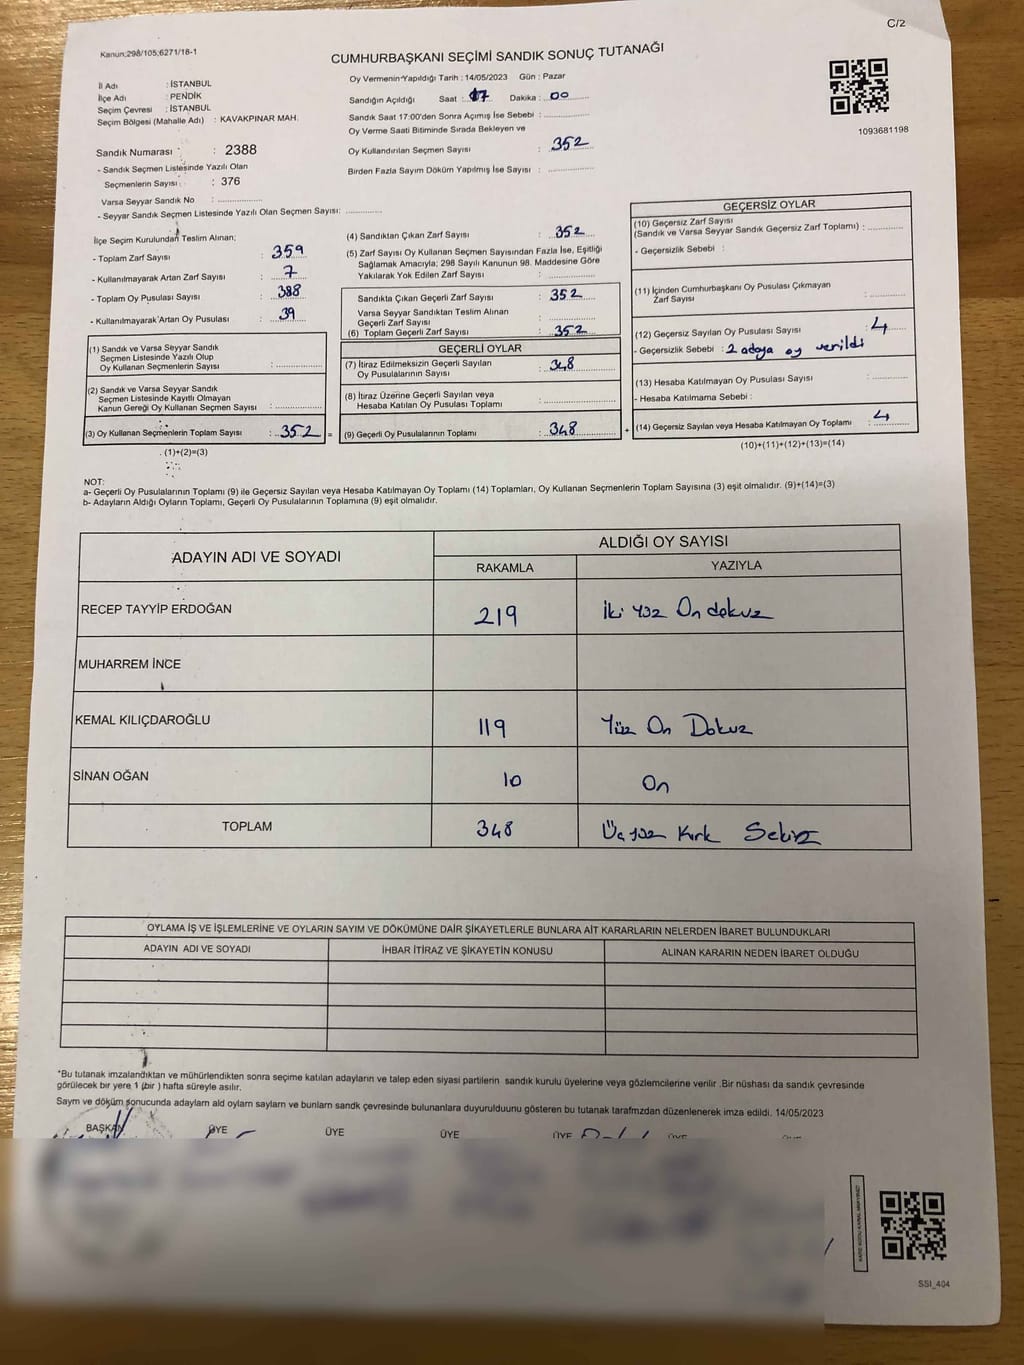 C/2
Kanun;298/105;6271/18-1
CUMHURBAŞKANI SEÇİMİ SANDIK SONUÇ TUTANAĞI
İl Adı : İSTANBUL
İlçe Adı : PENDİK
Seçim Çevresi : İSTANBUL
Seçim Bölgesi (Mahalle Adı) : KAVAKPINAR MAH.
Oy Vermenin Yapıldığı Tarih : 14/05/2023 Gün : Pazar
Sandığın Açıldığı Saat : 17 Dakika : 00
Sandık Saat 17:00'den Sonra Açımış İse Sebebi :
Oy Verme Saati Bitiminde Sırada Bekleyen ve
Oy Kullandırılan Seçmen Sayısı : 352
Birden Fazla Sayım Döküm Yapılmış İse Sayısı :
1093681198
Sandık Numarası : 2388
- Sandık Seçmen Listesinde Yazılı Olan
Seçmenlerin Sayısı : 376
Varsa Seyyar Sandık No :
- Seyyar Sandık Seçmen Listesinde Yazılı Olan Seçmen Sayısı:
İlçe Seçim Kurulundan Teslim Alınan;
- Toplam Zarf Sayısı : 359
- Kullanılmayarak Artan Zarf Sayısı : 7
- Toplam Oy Pusulası Sayısı : 388
- Kullanılmayarak Artan Oy Pusulası : 39
(1) Sandık ve Varsa Seyyar Sandık
Seçmen Listesinde Yazılı Olup
Oy Kullanan Seçmenlerin Sayısı :
(2) Sandık ve Varsa Seyyar Sandık
Seçmen Listesinde Kayıtlı Olmayan
Kanun Gereği Oy Kullanan Seçmen Sayısı :
(3) Oy Kullanan Seçmenlerin Toplam Sayısı : 352 =
(1)+(2)=(3)
(4) Sandıktan Çıkan Zarf Sayısı : 352
(5) Zarf Sayısı Oy Kullanan Seçmen Sayısından Fazla İse, Eşitliği
Sağlamak Amacıyla; 298 Sayılı Kanunun 98. Maddesine Göre
Yakılarak Yok Edilen Zarf Sayısı :
Sandıkta Çıkan Geçerli Zarf Sayısı : 352
Varsa Seyyar Sandıktan Teslim Alınan
Geçerli Zarf Sayısı :
(6) Toplam Geçerli Zarf Sayısı : 352
GEÇERLİ OYLAR
(7) İtiraz Edilmeksizin Geçerli Sayılan
Oy Pusulalarının Sayısı : 348
(8) İtiraz Üzerine Geçerli Sayılan veya
Hesaba Katılan Oy Pusulası Toplamı :
(9) Geçerli Oy Pusulalarının Toplamı : 348 +
GEÇERSİZ OYLAR
(10) Geçersiz Zarf Sayısı
(Sandık ve Varsa Seyyar Sandık Geçersiz Zarf Toplamı) :
- Geçersizlik Sebebi :
(11) İçinden Cumhurbaşkanı Oy Pusulası Çıkmayan
Zarf Sayısı :
(12) Geçersiz Sayılan Oy Pusulası Sayısı : 4
- Geçersizlik Sebebi : 2 adaya oy verildi
(13) Hesaba Katılmayan Oy Pusulası Sayısı :
- Hesaba Katılmama Sebebi :
(14) Geçersiz Sayılan veya Hesaba Katılmayan Oy Toplamı : 4
(10)+(11)+(12)+(13)=(14)
NOT:
a- Geçerli Oy Pusulalarının Toplamı (9) ile Geçersiz Sayılan veya Hesaba Katılmayan Oy Toplamı (14) Toplamları, Oy Kullanan Seçmenlerin Toplam Sayısına (3) eşit olmalıdır. (9)+(14)=(3)
b- Adayların Aldığı Oyların Toplamı, Geçerli Oy Pusulalarının Toplamına (9) eşit olmalıdır.
ADAYIN ADI VE SOYADI
ALDIĞI OY SAYISI
RAKAMLA YAZIYLA
RECEP TAYYİP ERDOĞAN 219 İki yüz On dokuz
MUHARREM İNCE
KEMAL KILIÇDAROĞLU 119 Yüz On Dokuz
SİNAN OĞAN 10 On
TOPLAM 348 Üç yüz Kırk Sekiz
OYLAMA İŞ VE İŞLEMLERİNE VE OYLARIN SAYIM VE DÖKÜMÜNE DAİR ŞİKAYETLERLE BUNLARA AİT KARARLARIN NELERDEN İBARET BULUNDUKLARI
ADAYIN ADI VE SOYADI İHBAR İTİRAZ VE ŞİKAYETİN KONUSU ALINAN KARARIN NEDEN İBARET OLDUĞU
*Bu tutanak imzalandıktan ve mühürlendikten sonra seçime katılan adayların ve talep eden siyasi partilerin sandık kurulu üyelerine veya gözlemcilerine verilir .Bir nüshası da sandık çevresinde
görülecek bir yere 1 (bir ) hafta süreyle asılır.
Saym ve döküm sonucunda adaylarn ald oylarn saylarn ve bunlarn sandk çevresinde bulunanlara duyurulduunu gösteren bu tutanak tarafmzdan düzenlenerek imza edildi. 14/05/2023
BAŞKAN ÜYE ÜYE ÜYE ÜYE ÜYE
SSI_404